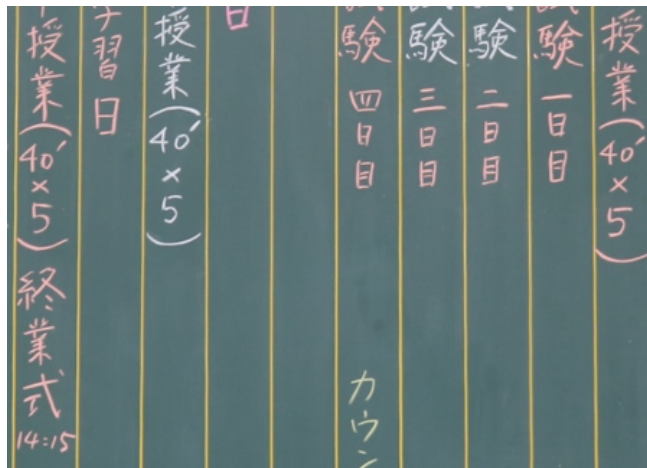 授業(40′×5)
試験 一日目
試験 二日目
試験 三日目
試験 四日目
カウン
日
授業(40′×5)
学習日
授業(40′×5)終業式 14:15